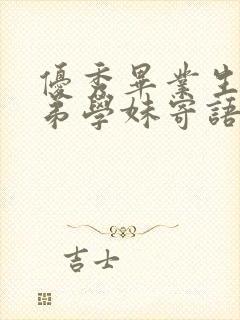 優秀畢業生
弟學妹寄語
吉士